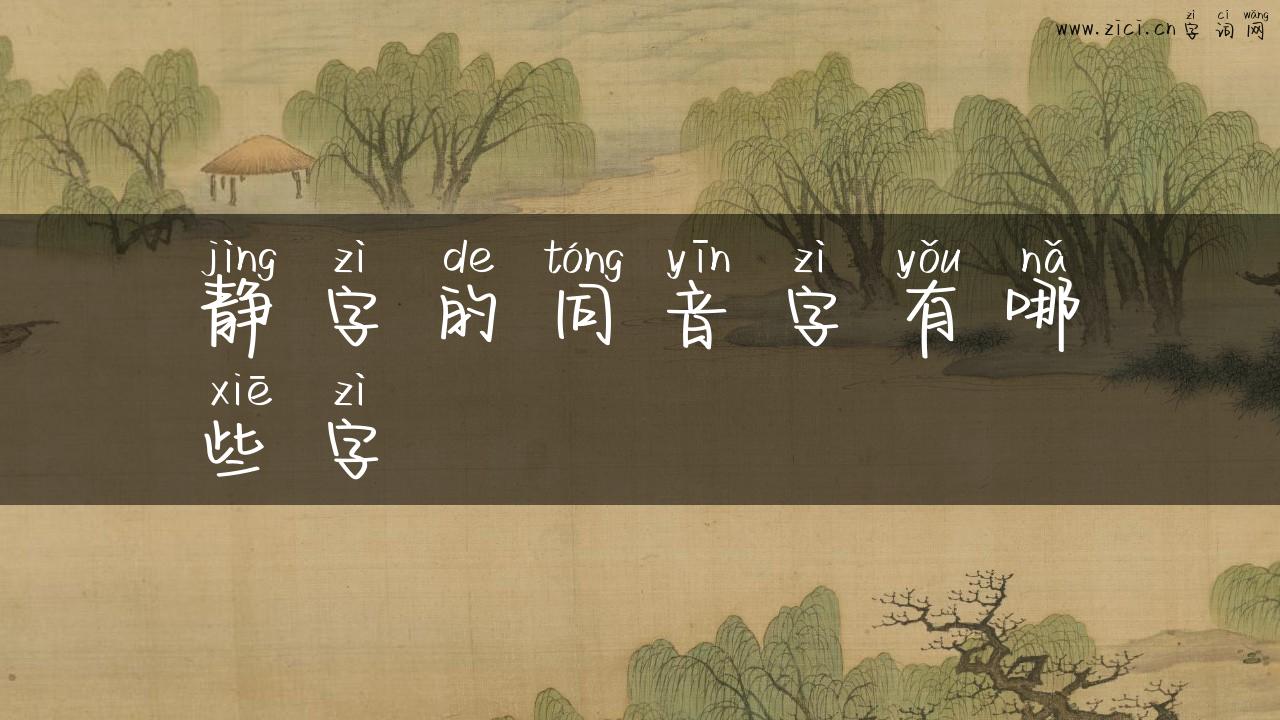 zì cí wǎng
www.zici.cn 字词网
jìng zì de tóng yīn zì yǒu nǎ
静字的同音字有哪
xiē zì
些字